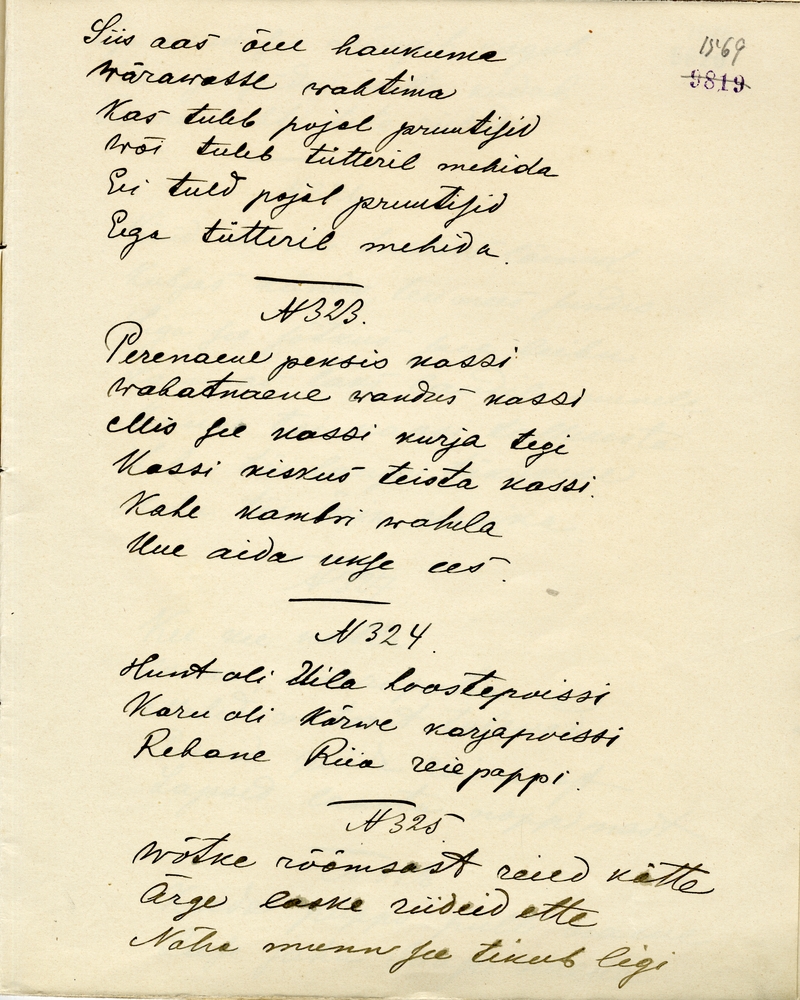 1569
9819
Siis aas õue haukuma
wärawasse wahtima
Kas tuleb pojal pruutisid
wõi tuleb tütteril mehida
Ei tuld pojal pruutisid
Ega tütteril mehida.
N 323.
Perenaene peksis kassi
wabatnaene wandus kassi
Mis see kassi kurja tegi
Kassi kiskus teista kassi.
Kahe kambri wahela
Uue aida ukse ees.
N 324.
Hunt oli Uila hoostepoissi
Karu oli Kärwe karjapoissi
Rebane Riia reiepappi.
N 325
Wõtke rõõmsast reied kätte
Ärge laske riideid ette
Näha munn see tikub ligi